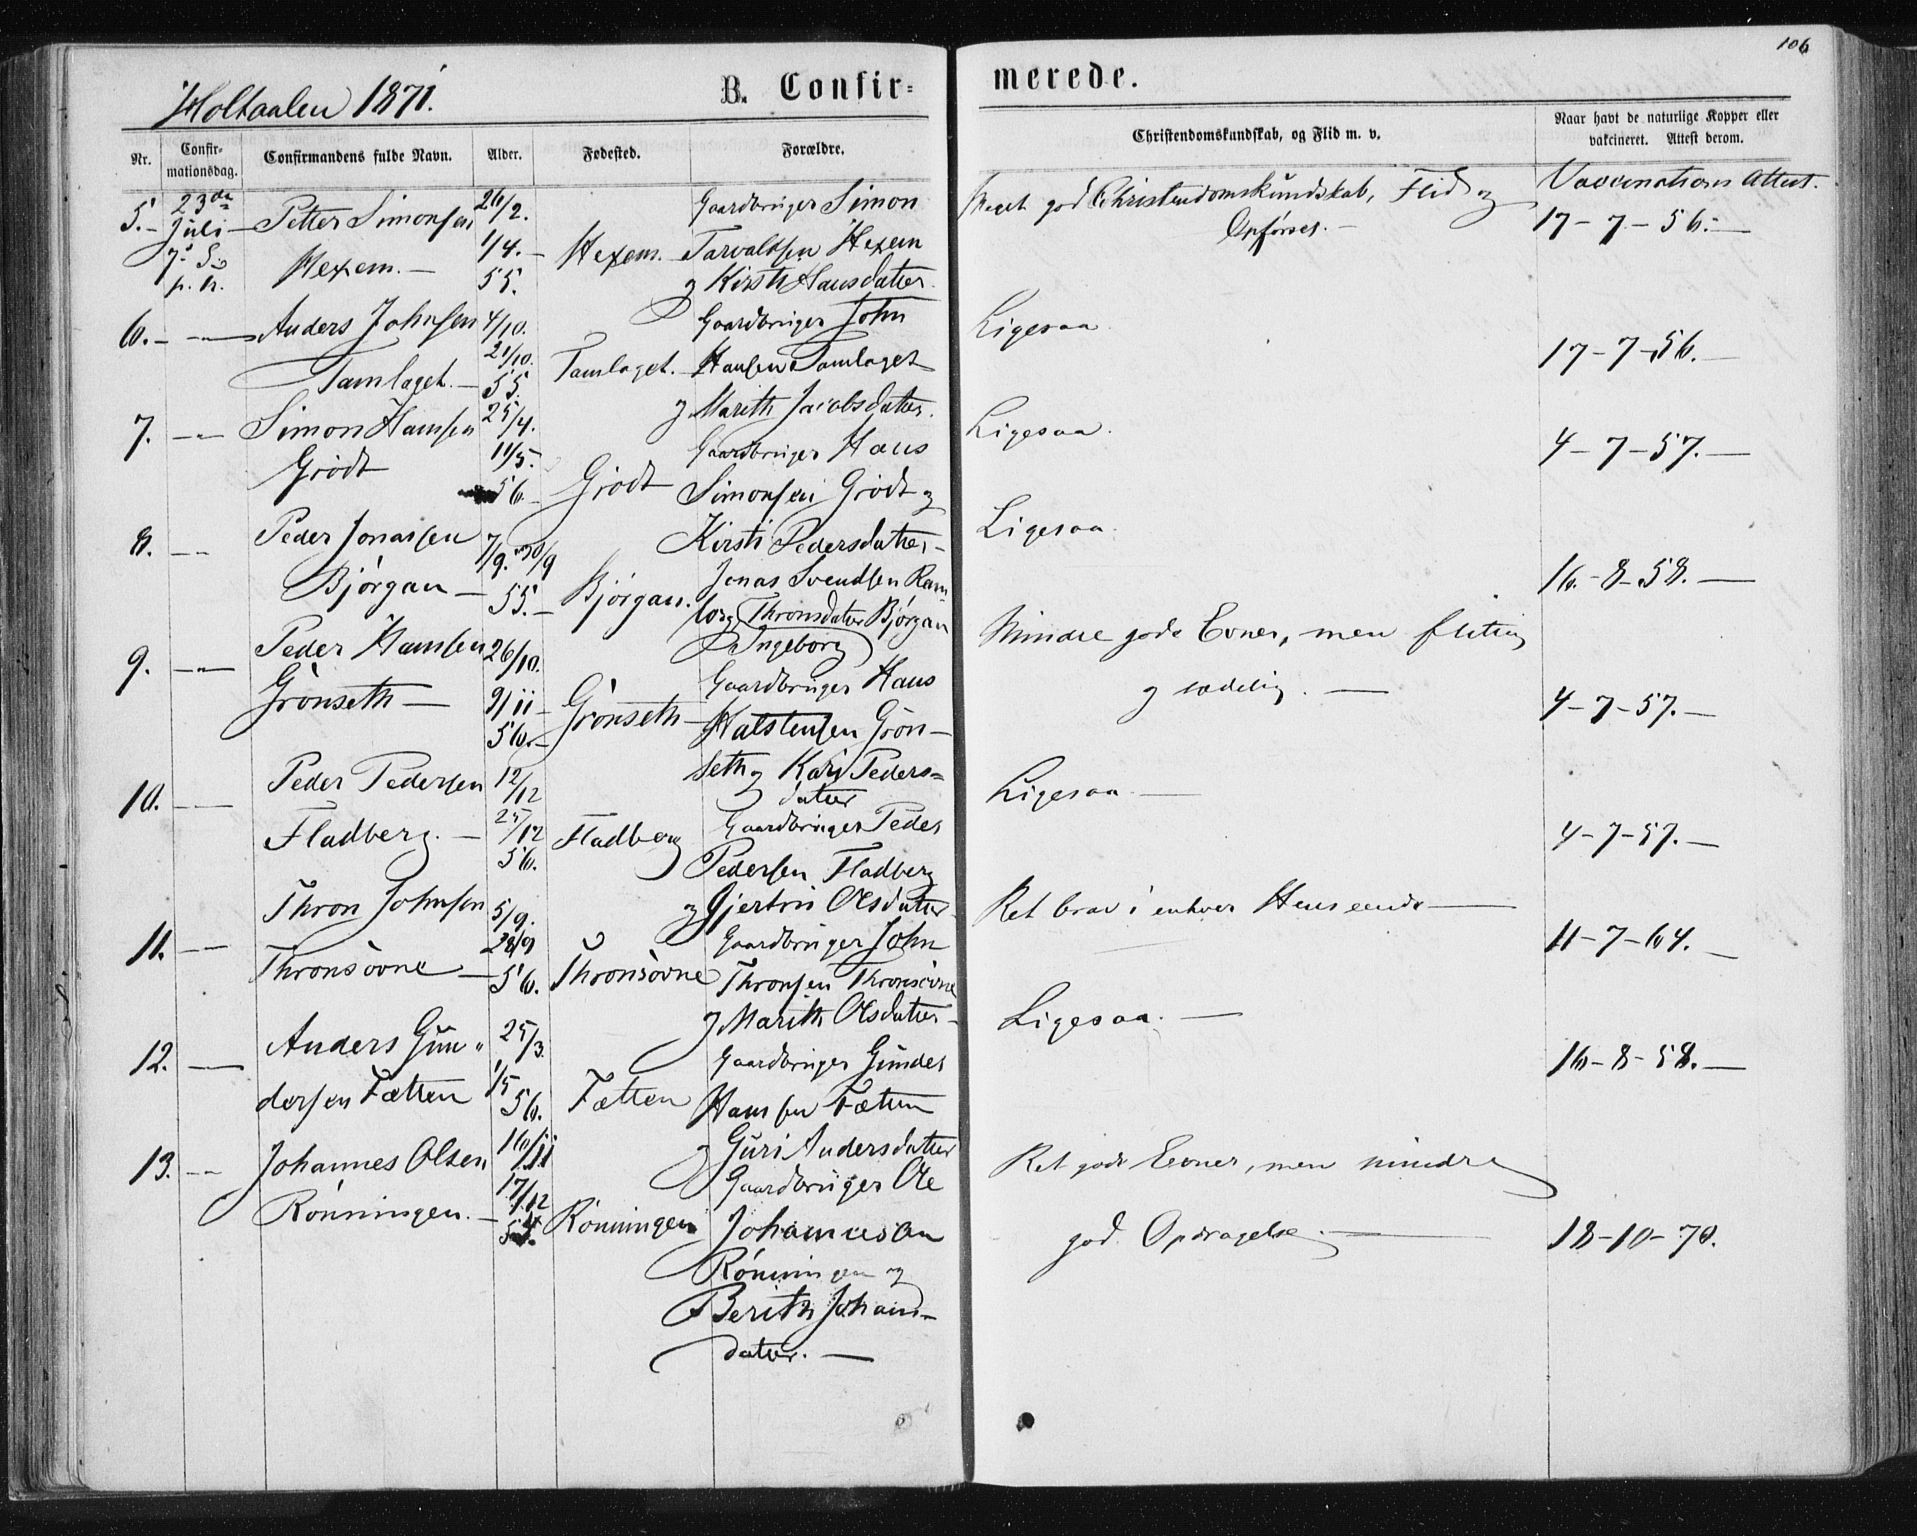 106
Holtaalen 1871.
B. Confir-
merede.
Nr.
Confir-
mationsdag.
Confirmandens fulde Navn.
Alder.
Fødested.
Forældre.
Christendomskundskab, og Flid m. v.
Naar havt de naturlige Kopper eller
vakcineret. Attest derom.
5.- 23de Petter Simonsen 26/2. Gaardbruger Simon
Juli 1/4.- Hexem.- Tarvaldsen Hexem
7. S. Hexem.- 55. og Kirsti Hansdatter.
p. tr.
Meget god Christendomskundskab, Flid og
Opførsel.-
Vaccinations Attest.
17-7-56.-
6.- Anders Johnsen 4/10. Gaardbruger John
21/10. Tamlaget. Hansen Tamlaget
Tamlaget.- 55. og Marith Jacobsdatter.
Ligesaa.
17-7-56.-
7. Simon Hansen 25/4. Gaardbruger Hans
Grødt 11/5. Grødt Simonsen Grødt og
56.- Kirsti Pedersdatter-
Ligesaa.
4-7-57.-
8. Peder Jonassen 7/9. 30/9 Jonas Svendsen Ram
Bjørgan- 55.- Bjørgan. lo og Thronsdatter Bjørgan
Ingeborg
Ligesaa.
16-8-58.-
9. Peder Hansen 26/10. Gaardbruger Hans
Grønseth- 9/11- Grønseth- Halstensen Grøn-
56.- seth og Kari Peders-
datter
Mindre gode Evner, men flittig
og sædelig.-
4-7-57.-
10. Peder Pedersen 12/12 Gaardbruger Peder
Fladberg.- 25/12 Fladberg Pedersen Fladberg
56. og Gjertru Olsdatter
Ligesaa-
4-7-57.-
11. Thron Johnsen 5/9. Gaardbruger John
Thronsøvne- 28/9 Thronsøvne Thronsen Thronsøvne
56. og Marith Olsdatter-
Ret brav i enhver Henseende-
11-7-64.-
12. Anders Gun- 25/3. Gaardbruger Gunder
dersen Fætten 1/5 Fætten Hansen Fætten
56. og Guri Andersdatter
Ligesaa.-
16-8-58.-
13. Johannes Olsen 16/11 Gaardbruger Ole
Rønningen.- 17/12 Rønningen Johannesen
54. Rønningen og
Berith Johans-
datter.-
Ret gode Evner, men mindre
god Opdragelse.-
18-10-70.